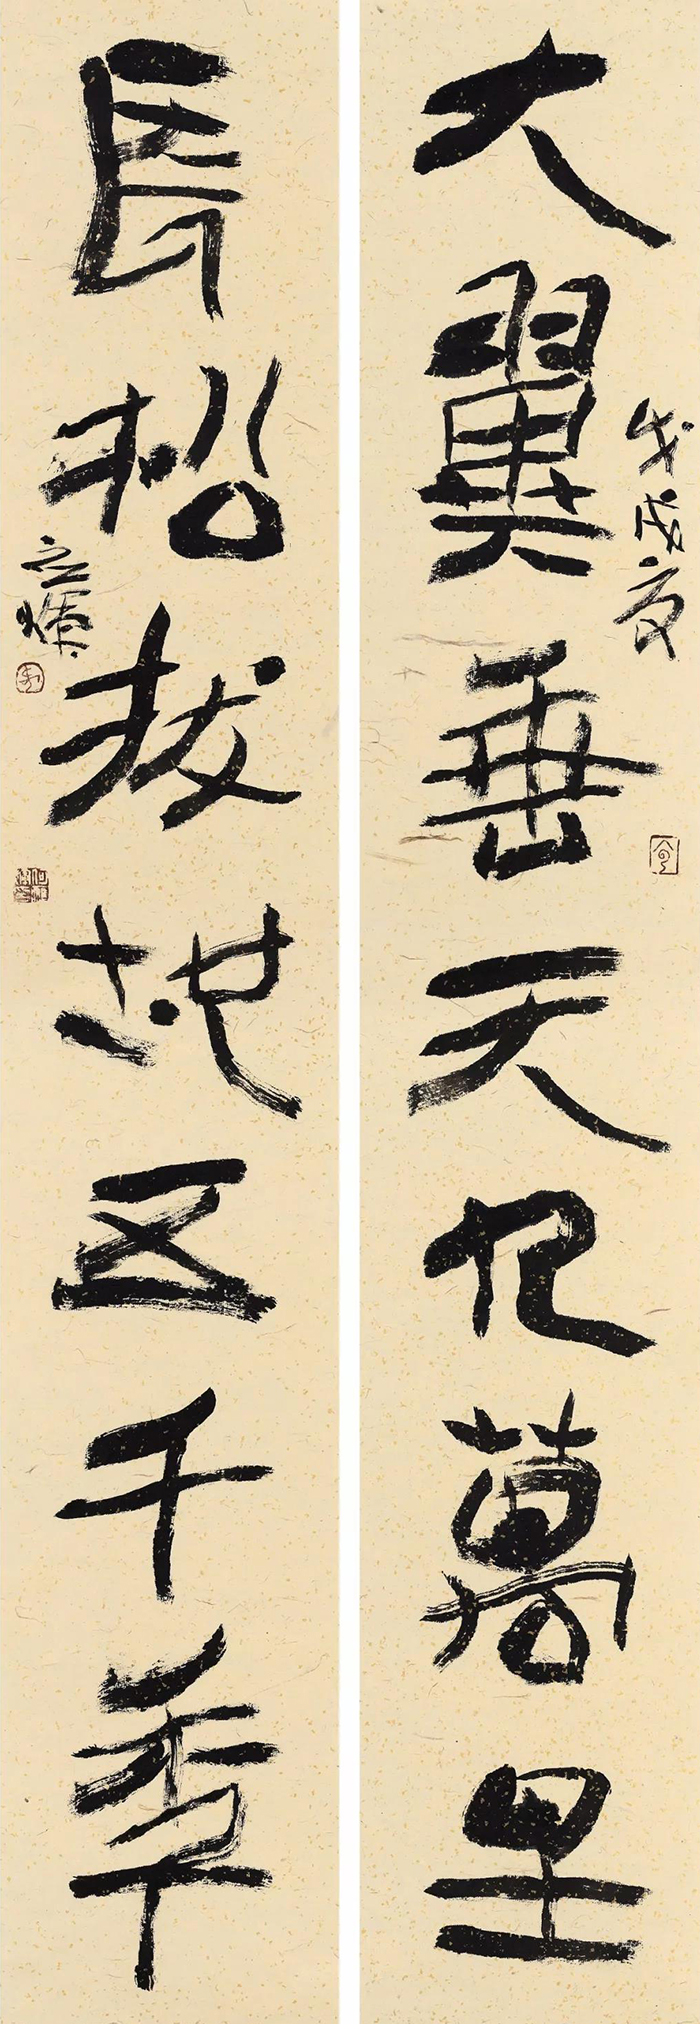 戊戌夏
大翼垂天九萬里
長松拔地五千秊